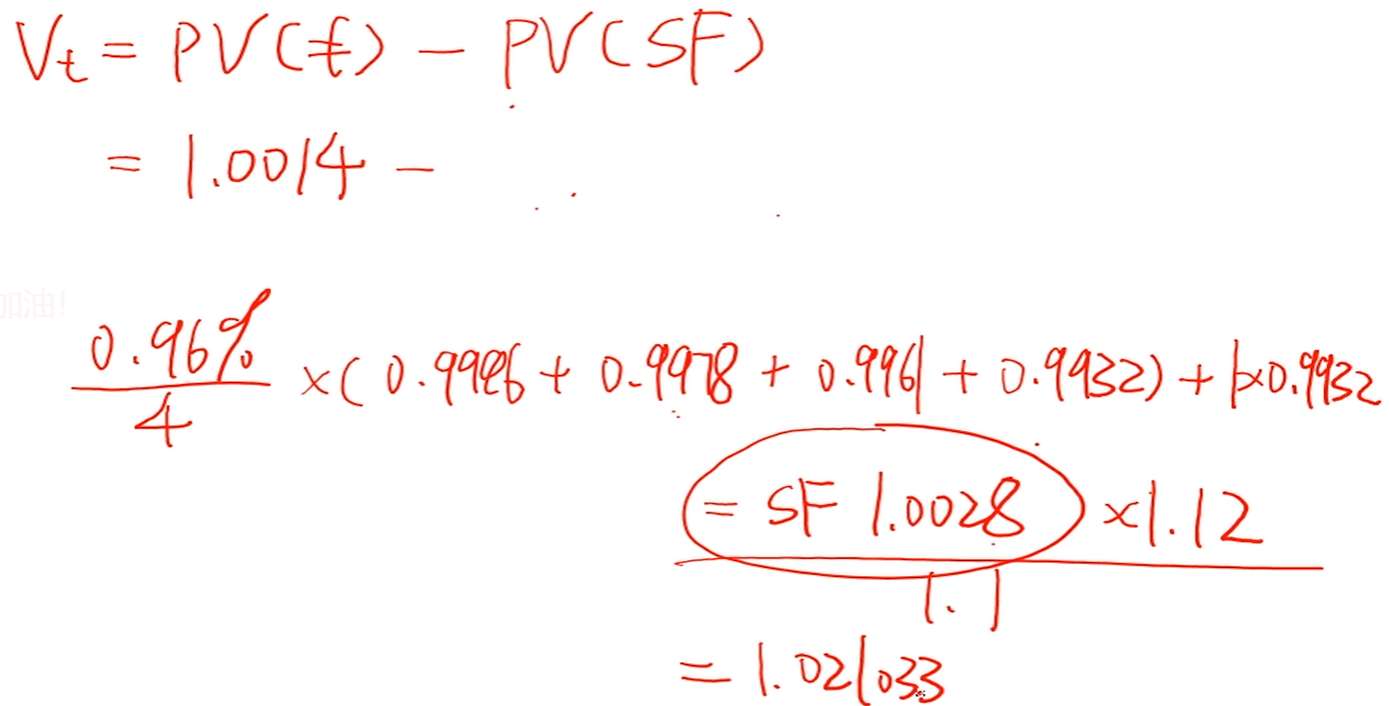 Vt = PV(£) - PV(SF)
= 1.0014 -
加油!
0.96% / 4 ×( 0.9986 + 0.9978 + 0.996| + 0.9932) + 1×0.9932
= SF 1.0028 ×1.12
1.1
= 1.021033